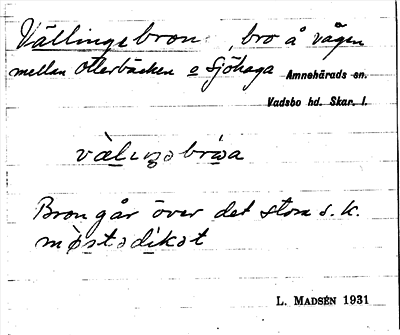 Vällingebron, bro å vägen
mellan Otterbäcken o Sjöhaga Amnehärads sn.
Vadsbo hd. Skar. l.
Bron går över det stora s. k.
L. MADSÉN 1931